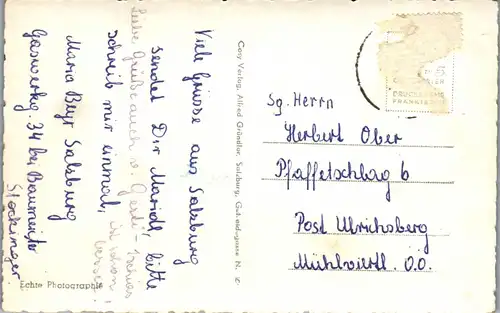 Viele Grüsse aus Salzburg
sendet Dir Mariedl, bitte
schreib mir einmal,
Maria Beyr Salzburg
Gaswerkg. 34 bei Baumeister
Stockinger.
Liebe Grüße auch v. Gerti
Echte Photographie
Cosy Verlag, Alfred Gründler, Salzburg
DRUCKSACHE
Sg. Herrn
Herbert Ober
Pfaffetschlag 6
Post Ulrichsberg
Mühlviertl. O.Ö.